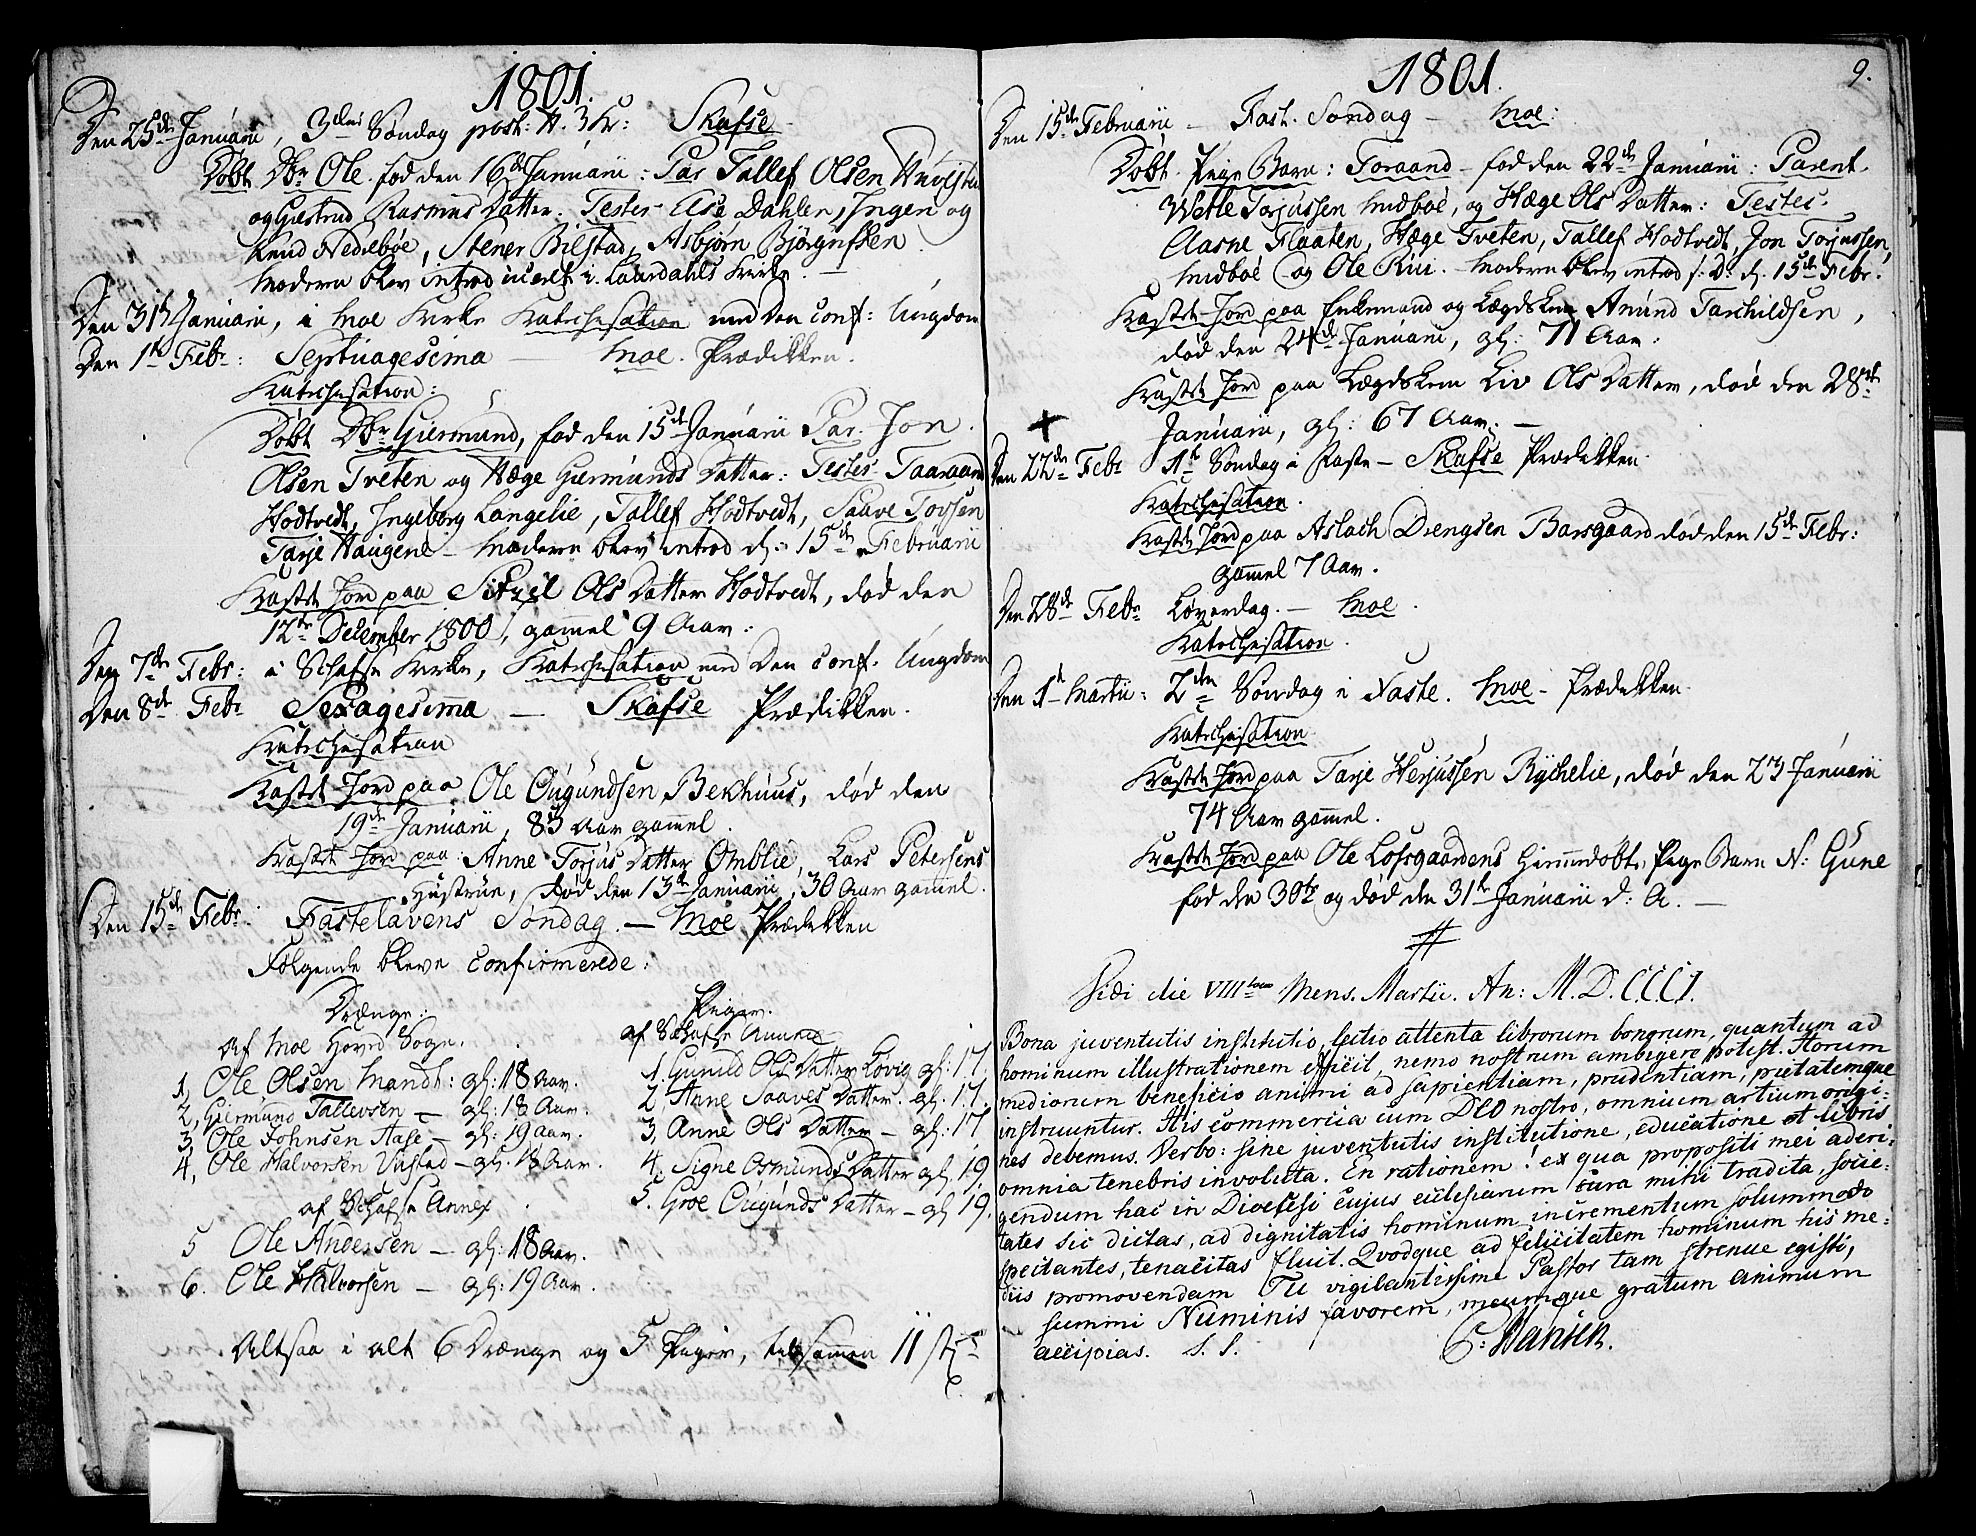 1801.
Den 25de Januarii, 3die Søndag post: H. 3 K: Skafse
Døbt Db: Ole. fød den 16de Januarii: Par Tallef Olsen
og Giestrud Rasmus Datter. Testes Else Dahlen, Ingen og
Knud Nedrebøe, Stener Bilstad, Asbjørn Bjørgufsen
Moderen blev introduceret i Laurdahls Kirke. —
Den 31te Januarii, i Moe Kirke Katechisation med den conf: Ungdom
Den 1te Febr: Septuagesima — Moe. Prædikken.
Katechisation:
Døbt Db: Giermund, fød den 15de Januarii Par. Jon
Olsen Tveten og Hæge Giermunds Datter: Testes Taaraand
Hodtvedt, Ingeborg Langelie, Tallef Hodtvedt, Saave Torsen
Tarje Haugene — Moderen blev introd d: 15de Februarii
Kastet Jord paa Sifrei Ols Datter Hodtvedt, død den
12te December 1800, gammel 9 Aar:
Den 7de Febr: i Schafse Kirke, Katechisation med den conf. Ungdom
Den 8de Febr Sexagesima — Skafse Prædikken.
Katechisation
Kastet Jord paa Ole Ougundsen Bekhuus, død den
19de Januarii, 83 Aar gammel.
Kastet Jord paa: Anne Torjus Datter Omblie, Lars Petersens
Hustrue, død den 13de Januarii, 30 Aar gammel.
Den 15de Febr. Fastelavens Søndag. — Moe Prædikken
Følgende bleve Confirmerede:
Drænge:
Af Moe Hoved Sogn.
1, Ole Olsen Mandt: gl: 18 Aar.
2, Giermund Tallevsen — gl: 18 Aar.
3, Ole Johnsen Aase — gl: 19 Aar.
4, Ole Halvorsen Vistad — gl: 18 Aar.
af Schafse Annex
5 Ole Andersen — gl: 18 Aar.
6. Ole Halvorsen — gl: 19 Aar.
Piger.
af Schafse Annex
1. Gunild Ols Datter Løvig gl: 17.
2, Anne Saaves Datter. gl. 17.
3, Anne Ols Datter — gl: 17
4. Signe Osmunds Datter gl. 19,
5. Groe Ougunds Datter — gl 19.
Altsaa i alt 6 Drænge og 5 Piger, tilsammen 11
1801.
9.
Den 15de Februarii — Fast. Søndag — Moe:
Døbt. Pige Barn: Toraand — fød den 22de Januarii: Parent.
Wetle Torjussen Midboe, og Hæge Ols Datter: Testes.
Aasne Flaaten, Hæge Tveten, Tallef Hodtvedt, Jon Torjussen,
Midboe og Ole Rui. — Moderen blev introd s: D. d. 15de Febr.
Kastet Jord paa Enkemand og Lægdslem Amund Tarchildsen,
død den 24de Januarii, gl: 71 Aar.
Kastet Jord paa Lægdslem Liv Ols Datter, død den 28de
Januarii, gl: 67 Aar. —
Den 22de Febr 1te Søndag i Faste — Skafse Prædikken.
Katechisation.
Kastet Jord paa Aslach Drengsen Barsgaard død den 15de Febr:
gammel 7 Aar.
Den 28de Febr Løverdag. — Moe.
Katechisation.
Den 1te Martii: 2den Søndag i Faste. Moe — Prædikken.
Katechisation.
Kastet Jord paa Tarje Herjussen Rychelie, død den 23 Januarii
74 Aar gammel.
Kastet Jord paa Ole Lofsgaardens Hiemmedøbt, Pige Barn N: Gune
fød den 30te og død den 31te Januarii d: A. —
Vidi die VIIItavo Mens. Martii. An: M.D.C.C.C.I.
Bona juventutis institutio, lectio attenta librorum bonorum, quantum ad
hominum illustrationem efficiit, nemo nostrum ambigere potest. Horum
mediorum beneficio animi ad sapientiam, prudentiam, pietatemque
instruuntur. His commercia cum DEO nostro, omnium artium origi-
nes debemus. Verbo: sine juventutis institutione, educatione et libris
omnia tenebris involuta. En rationem! ex qua propositi mei aderi:
gendum hac in Dioecesi cujus ecclesiarum cura mihi tradita, socie-
tates sic dictas, ad dignitatis hominum incrementum solummodo
spectantes, tenacitas fluit. Qvodque ad felicitatem hominum his me-
diis promovendam Tu vigilantissime Pastor tam strenue egisti,
summi Numinis favorem, meumque gratum animum
accipias. S. S.
C: Hansen.